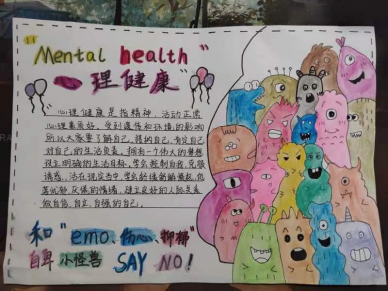 "Mental health"
心理健康
心理健康是指精神、活动正常
心理素质好。受到遗传和环境的影响
所以大家要了解自己，接纳自己，肯定自己
对自己的生活负责，拥有一个伟大的梦想
设立明确的生活目标，学会控制自我，克服
诱惑。活在现实当中，学会
反感的情绪，建立良好的人际关系
做自信、自立、自强的自己。
和"emo、伤心、抑郁"
自卑小怪兽 SAY NO!